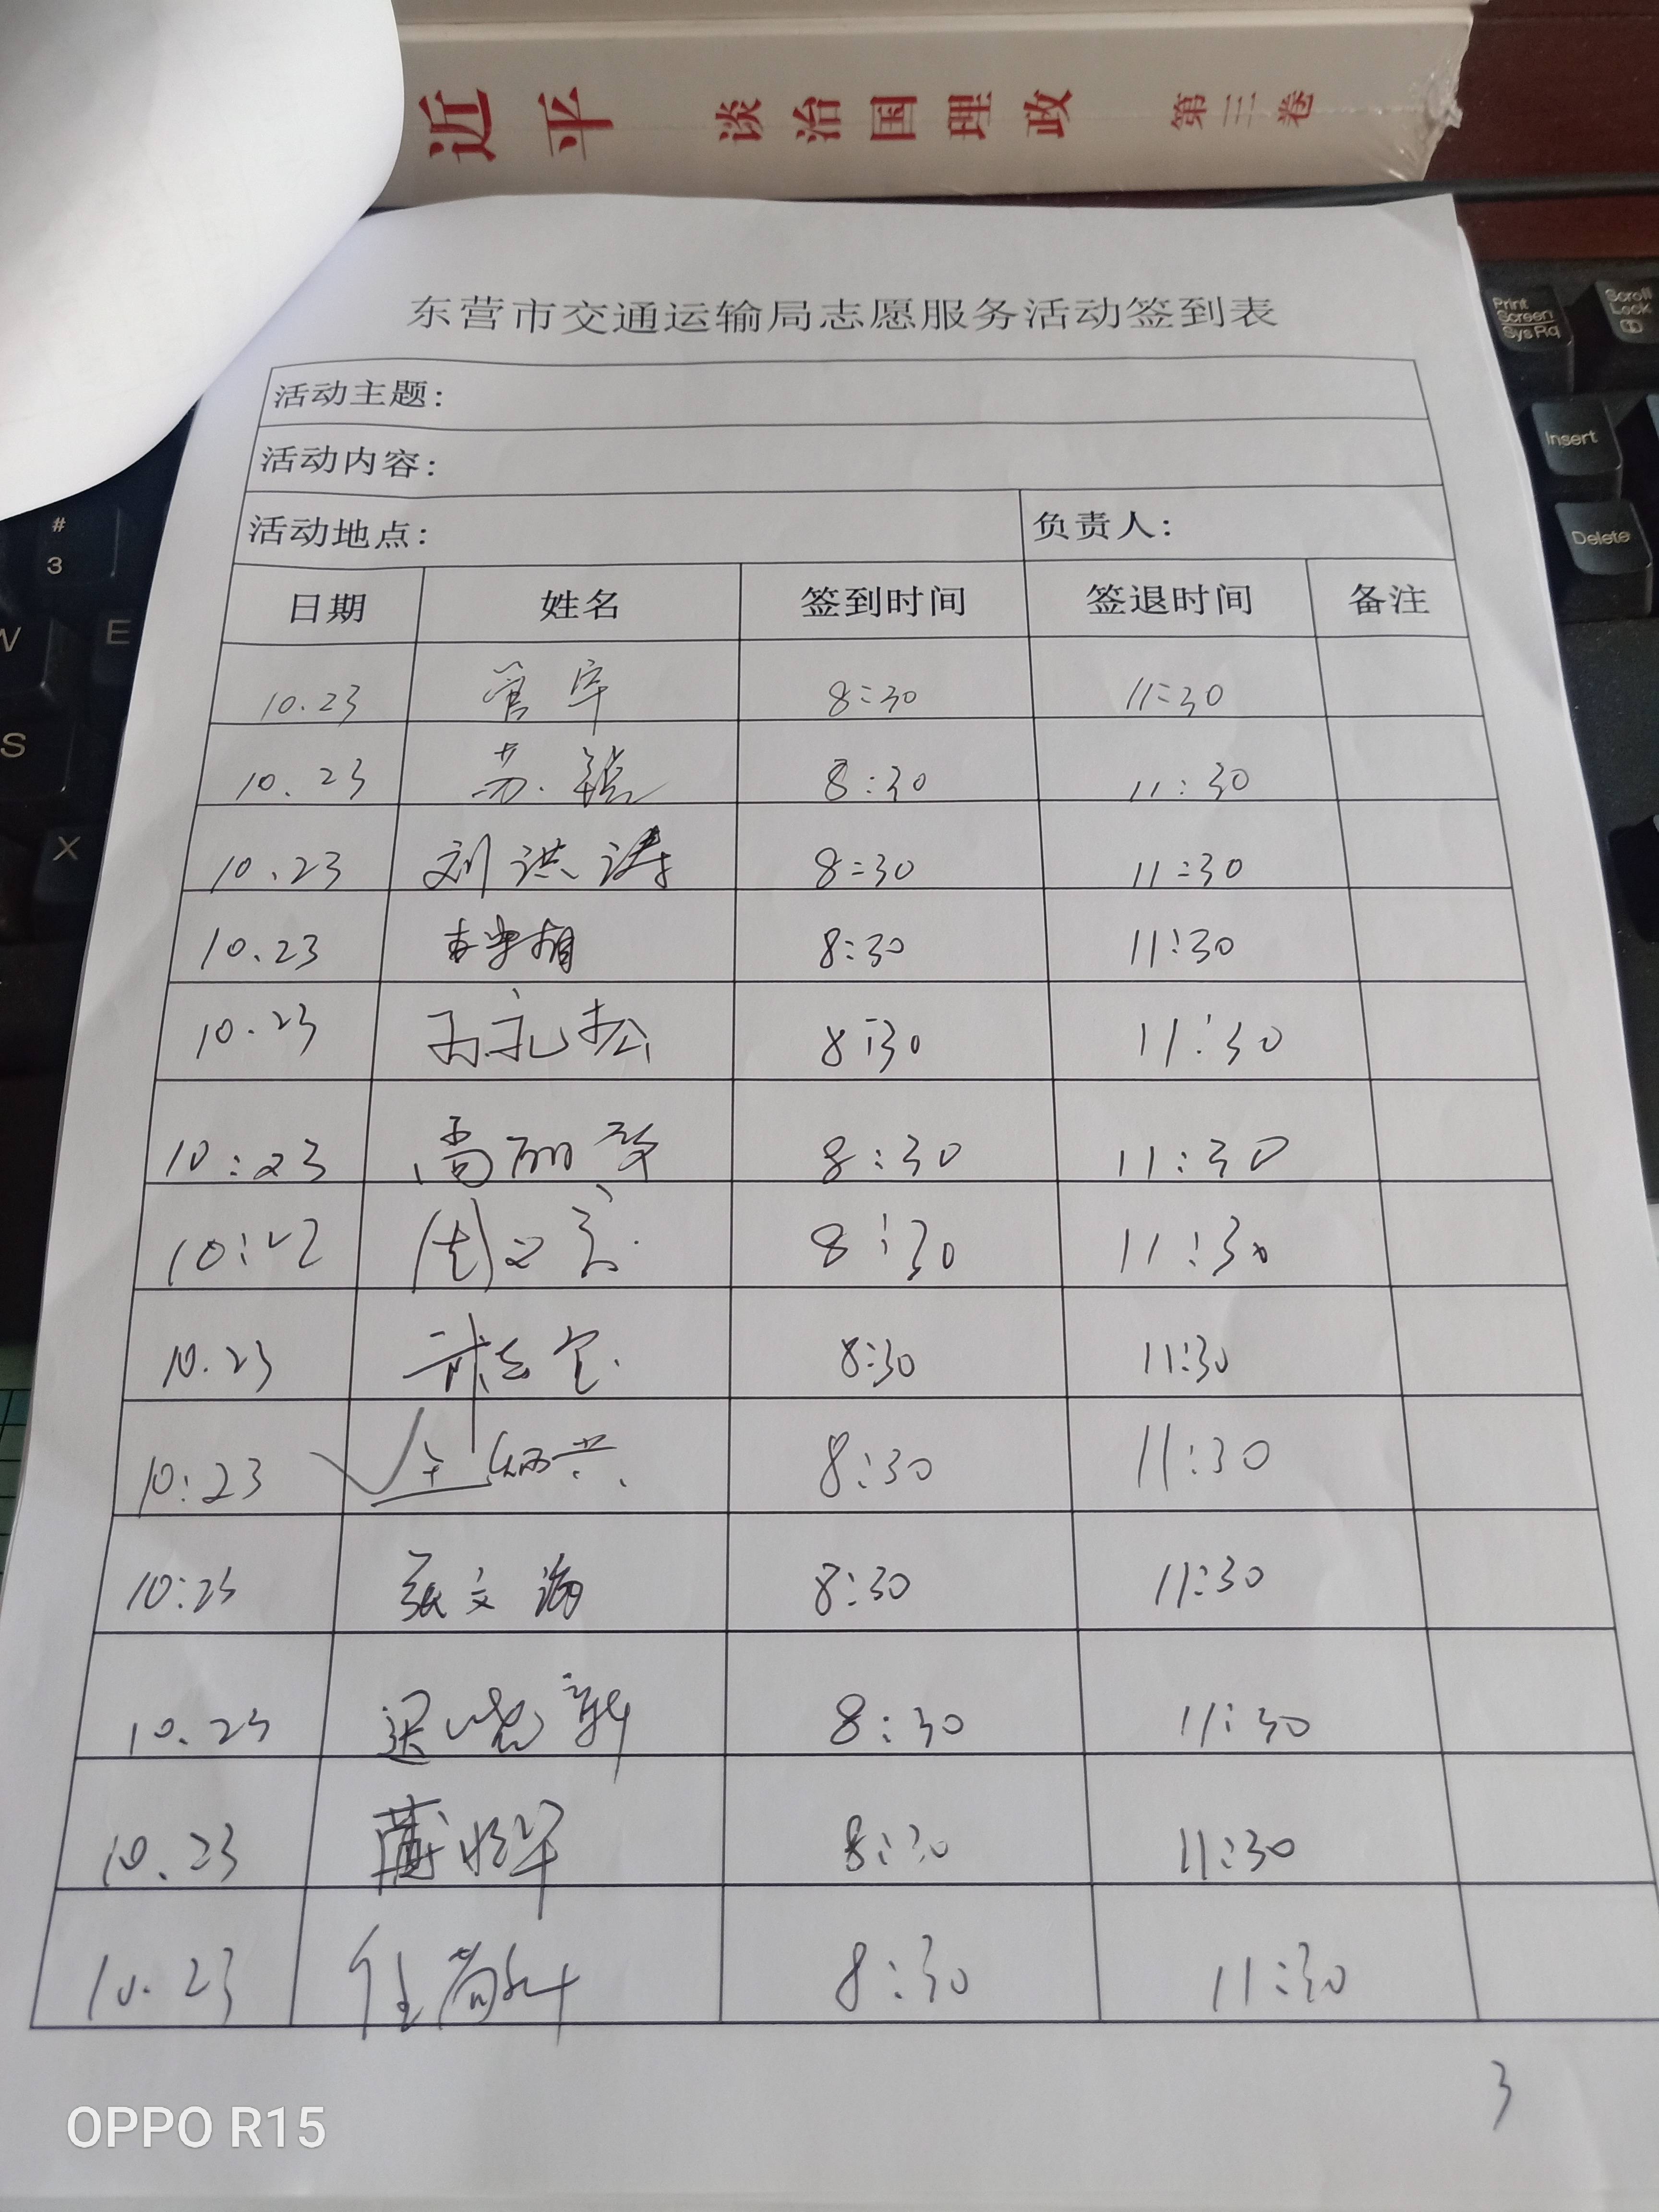 近平 谈治国理政 第三卷
Print Screen SysRq
Scroll Lock
Insert
Delete
# 3
W E
S
X
东营市交通运输局志愿服务活动签到表
活动主题:
活动内容:
活动地点: 负责人:
日期 姓名 签到时间 签退时间 备注
10.23 8:30 11:30
10.23 苏 8:30 11:30
10.23 刘洪涛 8:30 11:30
10.23 8:30 11:30
10.23 孙礼松 8:30 11:30
10:23 尚丽 8:30 11:30
8:30 11:30
10.23 8:30 11:30
10:23 王炳 8:30 11:30
10:23 张文海 8:30 11:30
10.23 迟晓新 8:30 11:30
10.23 8:30 11:30
10.23 任 8:30 11:30
3
OPPO R15